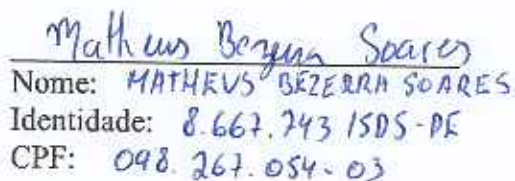 Matheus Bezerra Soares
Nome: MATHEUS BEZERRA SOARES
Identidade: 8.667.743 / SDS-PE
CPF: 098.267.054-03